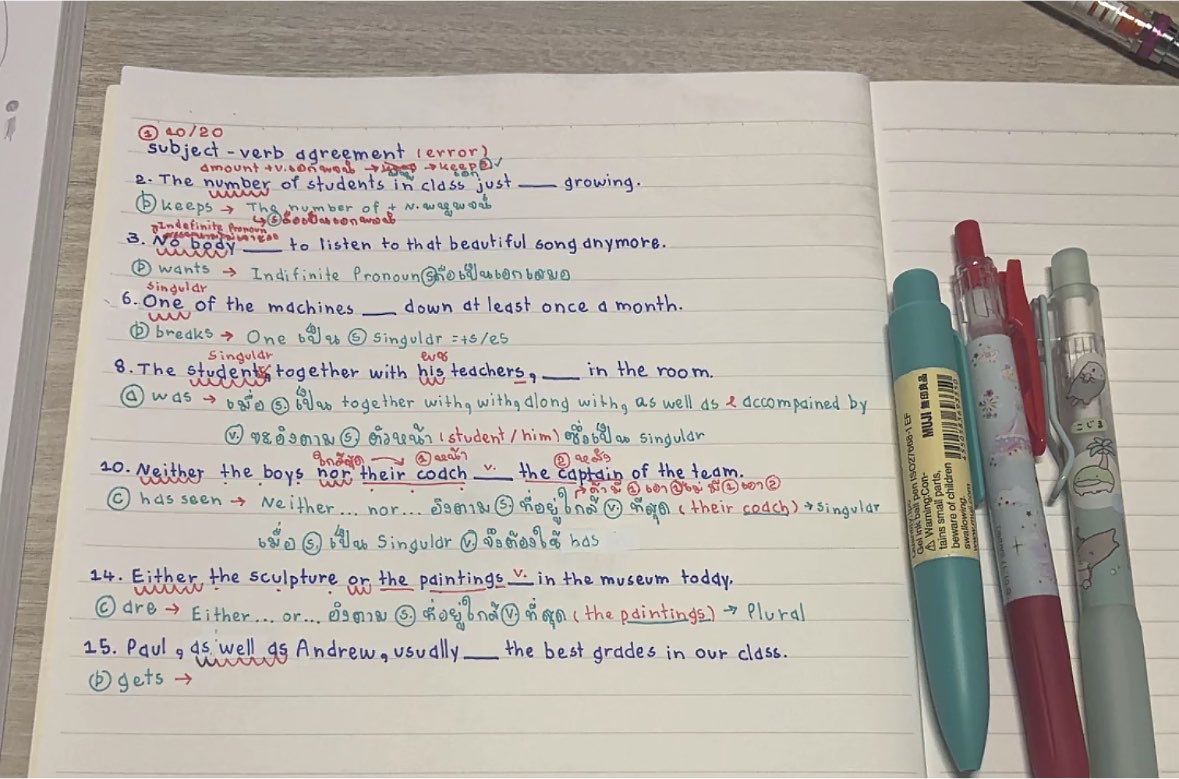 ① 10/20
subject-verb agreement (error)
amount + v. เอกพจน์ → → keep
2. The number of students in class just ___ growing.
ⓑ keeps → The number of + N. พหูพจน์
↳ Ⓢ ถือเป็นเอกพจน์
Indefinite Pronoun
3. No body ___ to listen to that beautiful song anymore.
ⓑ wants → Indifinite Pronoun Ⓢ ถือเป็นเอกเสมอ
singular
6. One of the machines ___ down at least once a month.
ⓑ breaks → One เป็น Ⓢ singular = +s/es
singular ของ
8. The student, together with his teachers, ___ in the room.
ⓐ was → เมื่อ Ⓢ เป็น together with, with, along with, as well as & accompained by
ⓥ จะอิงตาม Ⓢ ตัวหน้า (student/him) ซึ่งเป็น singular
ใกล้สุด ① หน้า ② หลัง
10. Neither the boys nor their coach v. the captain of the team.
ถ้ามี ① เอา ① ไม่มี ① เอา ②
ⓒ has seen → Neither... nor... อิงตาม Ⓢ ที่อยู่ใกล้ ⓥ ที่สุด (their coach) → singular
เมื่อ Ⓢ เป็น Singular ⓥ จึงต้องใช้ has
14. Either the sculpture or the paintings v. in the museum today.
ⓒ are → Either... or... อิงตาม Ⓢ ที่อยู่ใกล้ ⓥ ที่สุด (the paintings) → Plural
15. Paul, as well as Andrew, usually ___ the best grades in our class.
ⓑ gets →
Gel ink ball pen
MUJI 無印良品
⚠ Warning: Con-
tains small parts,
beware of children
swallowing.